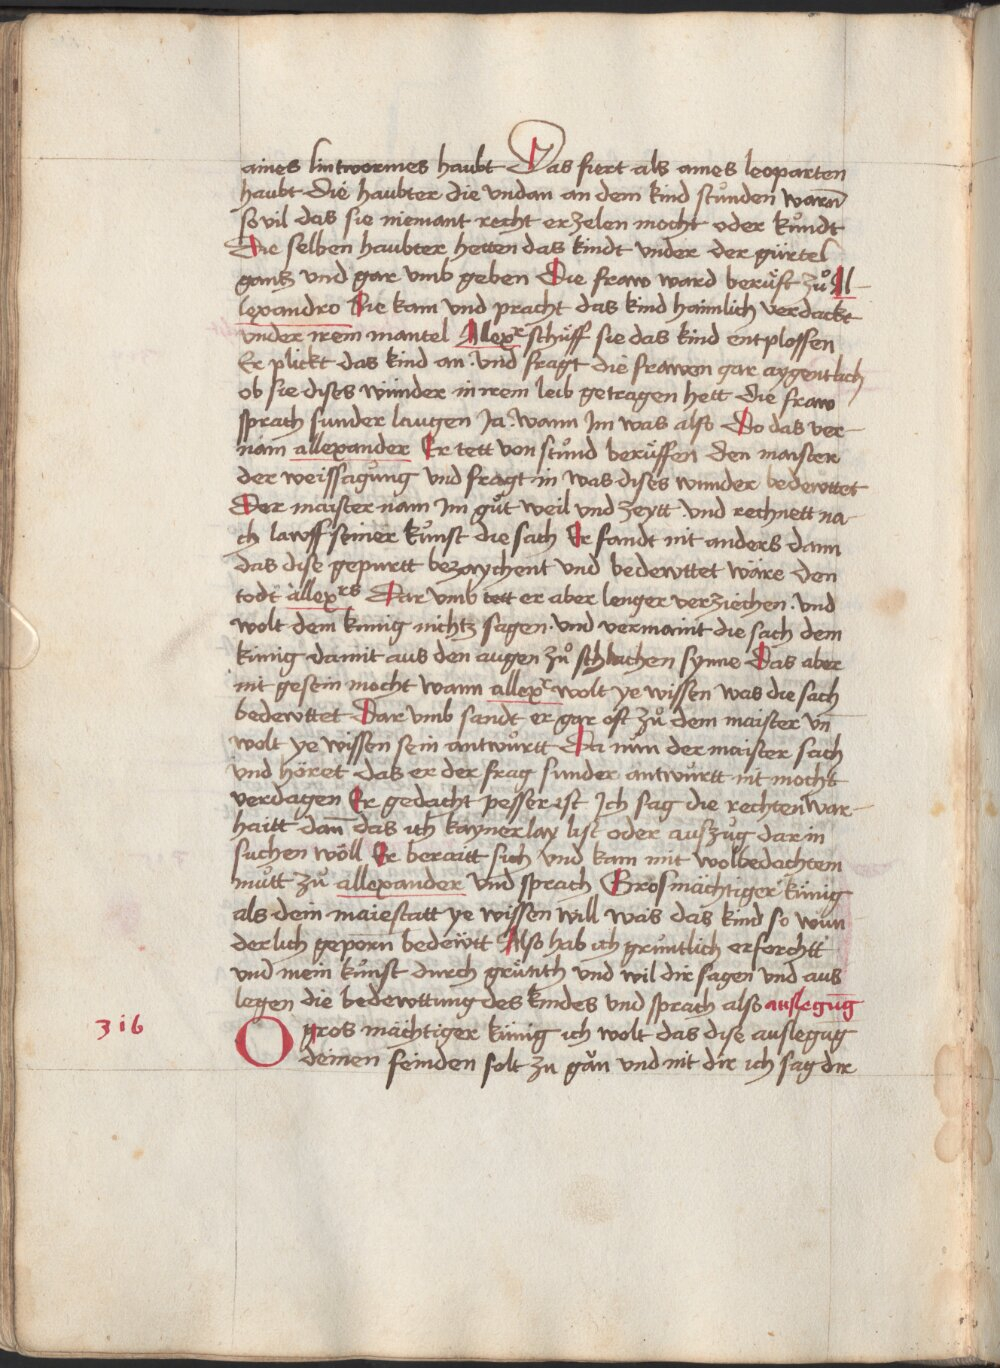 aines lintwormes haubt Das fiert als aines leoparten
haubt Die haubter die vndan an dem kind stůnden warn̄
so vil das sie niemant recht erzelen mocht oder kůndt
Die selben haubter hetten das kindt vnder der gürtel
gantz vnd gar vmb geben Die fraw ward berüfft zů Al-
lexandro Die kam vnd pracht das kind haimlich verdackt
vnder irem mantel Allexr schüff sie das kind entplossen
Er plickt das kind an · vnd fragt die frawen gar aygentlich
ob sie dises wunder in irem leib getragen hett Die fraw
sprach sunder laugen Ja · wann Im was also Do das ver-
nam allexander Er tett von stůnd berüffen den maister
der weissagung vnd fragt in was dises wunder bedewttet
Der maister nam Im gůt weil vnd zeytt · vnd rechnett na-
ch lawff seiner kůnst die sach Er fandt nit anders dann
das dise gepurtt bezaychent vnd bedewttet wäre den
todt allexrs Dar vmb tett er aber lenger verziechen · vnd
wolt dem kunig nichtz sagen · vnd vermaint die sach dem
künig damit aus den augen zů schlachen synne Das aber
nit gesein mocht wann allexr wolt ye wissen was die sach
bedewttet Dar vmb sandt er gar oft zů dem maister vn̄
wolt ye wissen sein antwůrtt Da nun der maister sach
vnd höret das er der frag sunder antwurtt nit mocht
verdagen Er gedacht pesser ist Ich sag die rechten war-
haitt dan̄ das ich kaynerlay list oder auszug dar in
suchen wöll Er beraitt sich vnd kam mit wolbedachtem
můtt zů allexander vnd sprach Grosmächtiger künig
als dein maiestatt ye wissen will was das kind so wun
derlich geporn bedewtt Also hab ich gruntlich erforchtt
vnd mein kůnst durch gründt vnd wil dir sagen vnd aus
legen die bedewttung des kindes vnd sprach also auslegūg
316
O gros mächtiger künig ich wolt das dise auslegūg
deinen feinden solt zu gän vnd nit dir ich sag dir